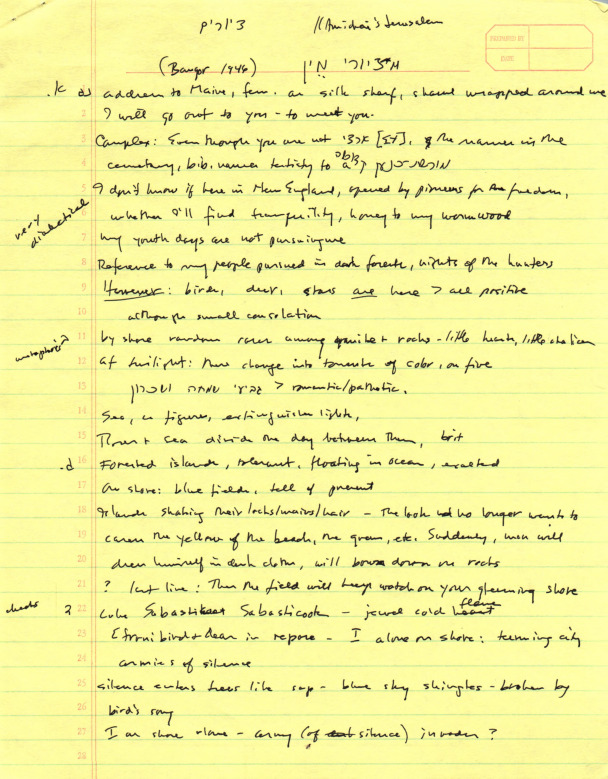 ציורים // Amichai's Jerusalem
PREPARED BY
DATE
(Bangor 1946) מציורי מיין
.k a) address to Maine, fem. as silk sharf, shawl wrapped around me
2 I will go out to you - to meet you.
3 Complex: Even though you are not ארצי, the names in the
4 cemetery, bib. names testify to a
5 I don't know if here in New England, opened by pioneers for freedom,
6 whether I'll find tranquility, honey to my wormwood
very dialectical
7 my youth days are not pursuing me
8 Reference to my people pursued in dark forests, nights of the hunters
9 However: birds, deer, stars are here > all positive
10 although small consolation
11 by shore random roses among granite + rocks - little hearts, little chalices
metaphors?
12 at twilight: these change into torrents of color, on fire
13 גביעי שמחה ושכרון > romantic/pathetic.
14 Sea, as figures, extinguishes lights,
15 Flowers + sea divide the day between them, but
.d 16 Forested islands, floating in ocean, exalted
17 On shore: blue fields, tell of present
18 Islands shaking their locks/manes/hair - The look no longer wants to
19 caress the yellow of the beach, the green, etc. Suddenly, man will
20 dress himself in dark cloth, will bow down on rocks
21 ? last line: Then the field will keep watch on your gleaming shore
checks
22 ? Lake Sabasticook - jewel cold flame
23 bird + deer in repose - I alone on shore: teeming city
24 armies of silence
25 silence enters trees like sap - blue sky shingles - broken by
26 bird's song
27 I on shore alone - army (of silence) invades?
28